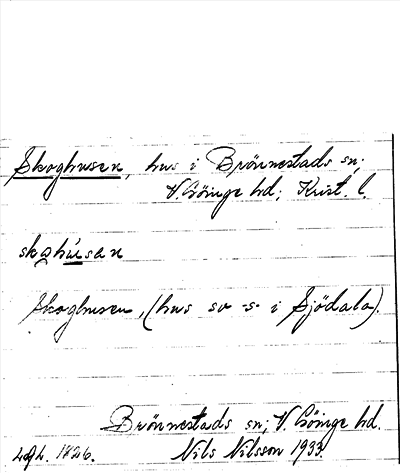 Skoghusen, hus i Brönnestads sn;
V. Göinge hd; Krist. l.
skoghúsan
Skoghusen, (hus so -s- i Sjödala).
Brönnestads sn; V. Göinge hd.
Nils Nilsson 1933.